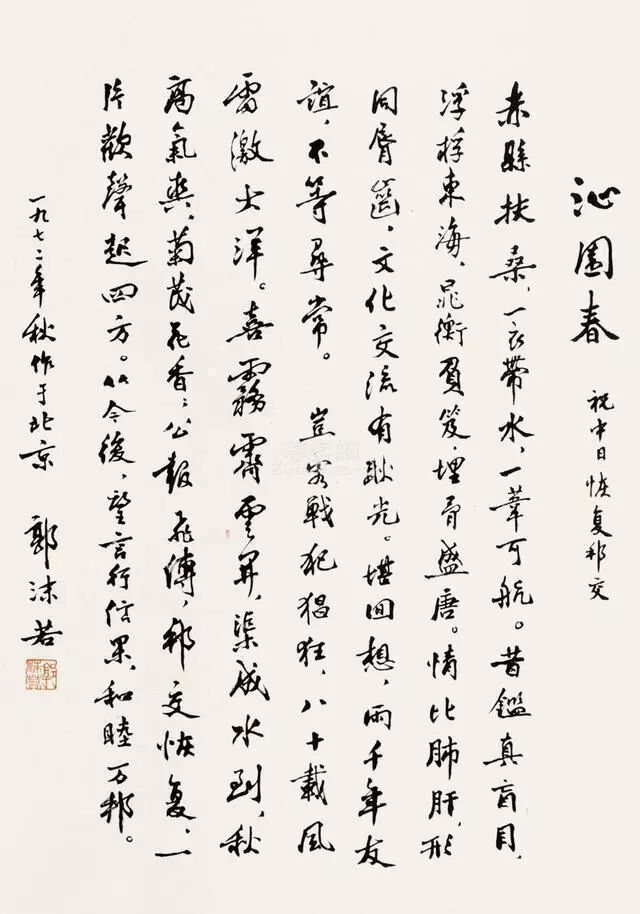 沁園春 祝中日恢复邦交
赤縣扶桑，一衣帶水，一葦可航。昔鑑真盲目，
浮桴東海，晁衡負笈，埋骨盛唐。情比肺肝，形
同脣齒，文化交流有耿光。堪回想，兩千年友
誼，不等尋常。 豈容戰犯猖狂，八十載風
雷激大洋。喜霧霽雲開，渠成水到，秋
高氣爽，菊茂花香；公報飛傳，邦交恢复，一
片歡聲起四方。从今後，望言行信果，和睦万邦。
一九七二年秋作于北京 郭沫若